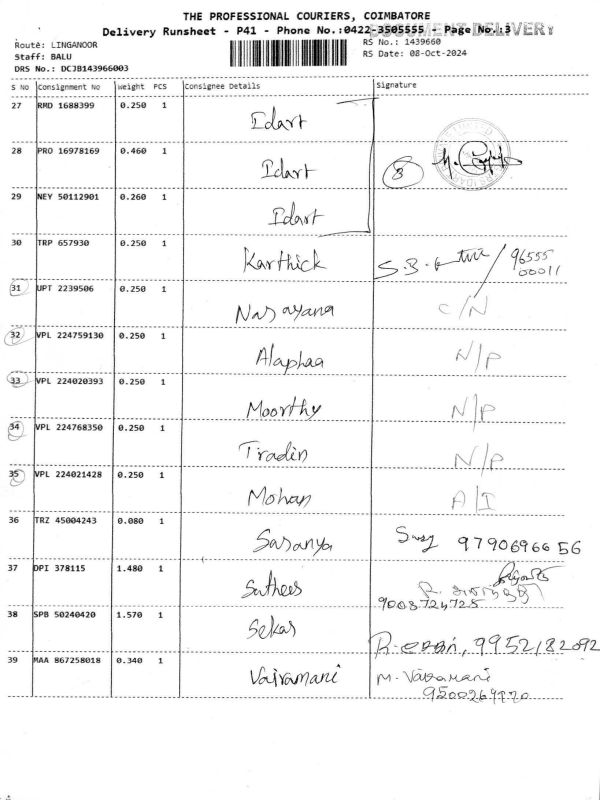 THE PROFESSIONAL COURIERS, COIMBATORE
DOCUMENT DELIVERY
Delivery Runsheet - P41 - Phone No.:0422-3505555 - Page No.:3
Route: LINGANOOR
RS No.: 1439660
Staff: BALU
RS Date: 08-Oct-2024
DRS No.: DCJB143966003
S No Consignment No Weight PCS Consignee Details Signature
27 RMD 1688399 0.250 1 Idart
28 PRO 16978169 0.460 1 Idart 8
29 NEY 50112901 0.260 1 Idart
30 TRP 657930 0.250 1 Karthick 96555
00011
31 UPT 2239506 0.250 1 Narayana C/N
32 VPL 224759130 0.250 1 Alaphaa N/P
33 VPL 224020393 0.250 1 Moorthy N/P
34 VPL 224768350 0.250 1 Tradin N/P
35 VPL 224021428 0.250 1 Mohan A/I
36 TRZ 45004243 0.080 1 Saranya 9790696656
37 DPI 378115 1.480 1 Suthees
9003724725
38 SPB 50240420 1.570 1 Sekar 9952182092
39 MAA 867258018 0.340 1 Vairamani M. Vairamani